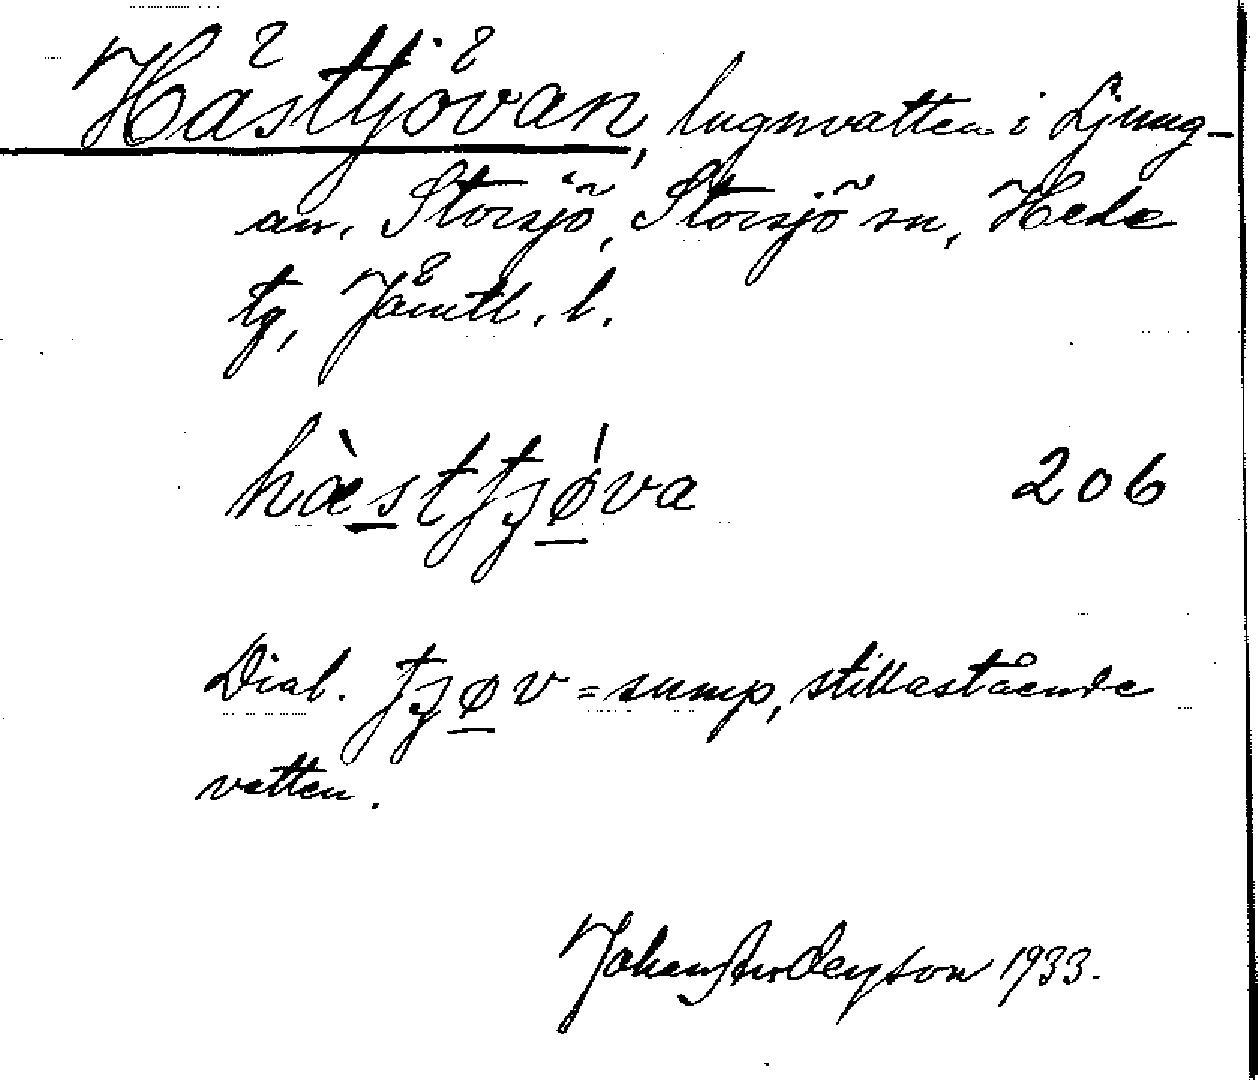 Hästtjövan, lugnvatten i Ljung-
an, Storsjö, Storsjö sn, Hede
tg, Jämtl. l.
hæ̀sttʒǿva 206
Dial. tʒøv = sump, stillastående
vatten.
Johan Andersson 1933.